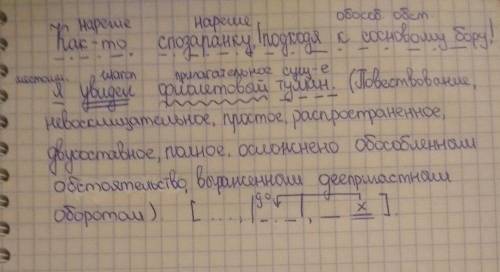 наречие наречие обособ обст
Как-то спозаранку, подходя к сосновому бору,
местоим. глагол прилагательное сущ-е
я увидел фиолетовый туман. (Повествование,
невосклицательное, простое, распространенное,
двусоставное, полное, осложнено обособленным
обстоятельство, выраженным деепричастным
оборотом) [ ...., | до _ . _ |, _ x ].